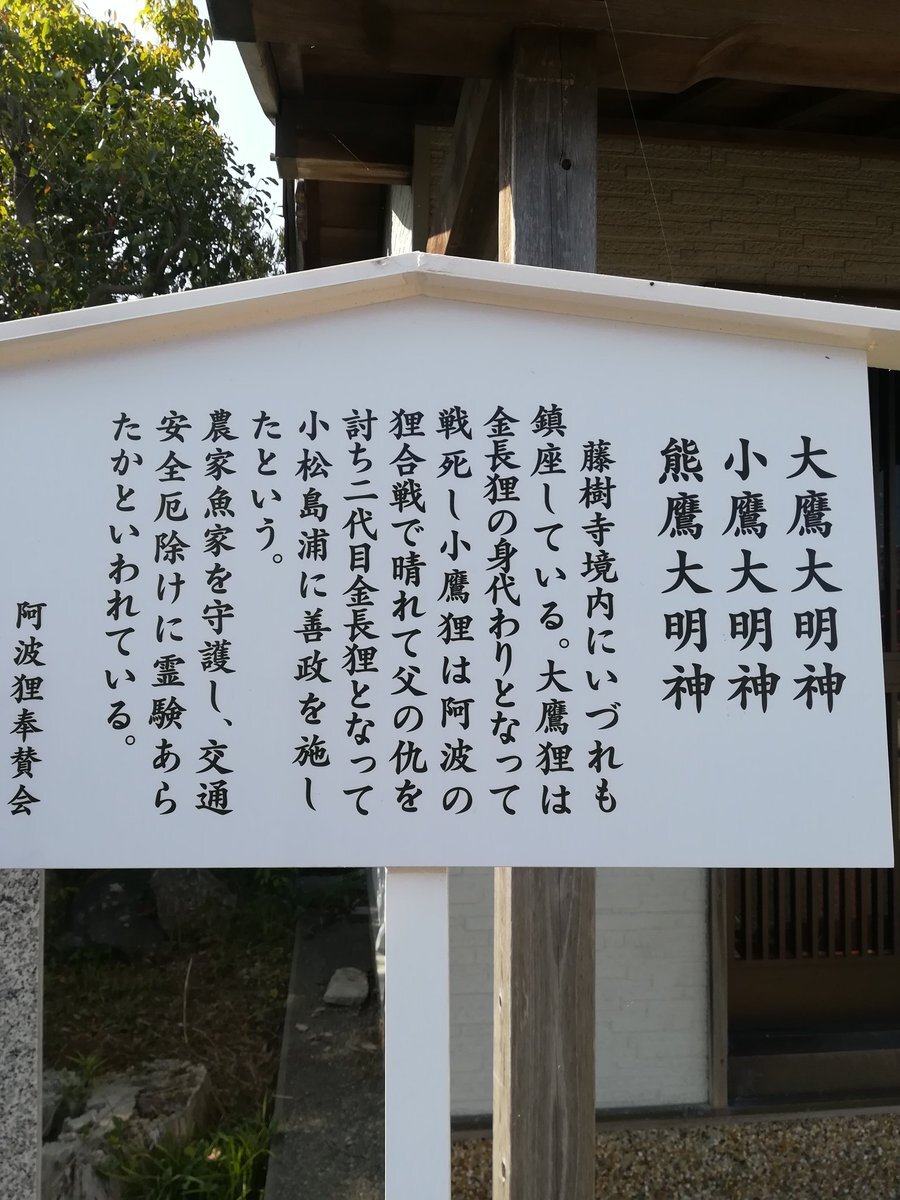 大鷹大明神
小鷹大明神
熊鷹大明神
藤樹寺境内にいづれも
鎮座している。大鷹狸は
金長狸の身代わりとなって
戦死し小鷹狸は阿波の
狸合戦で晴れて父の仇を
討ち二代目金長狸となって
小松島浦に善政を施し
たという。
農家魚家を守護し、交通
安全厄除けに霊験あら
たかといわれている。
阿波狸奉賛会